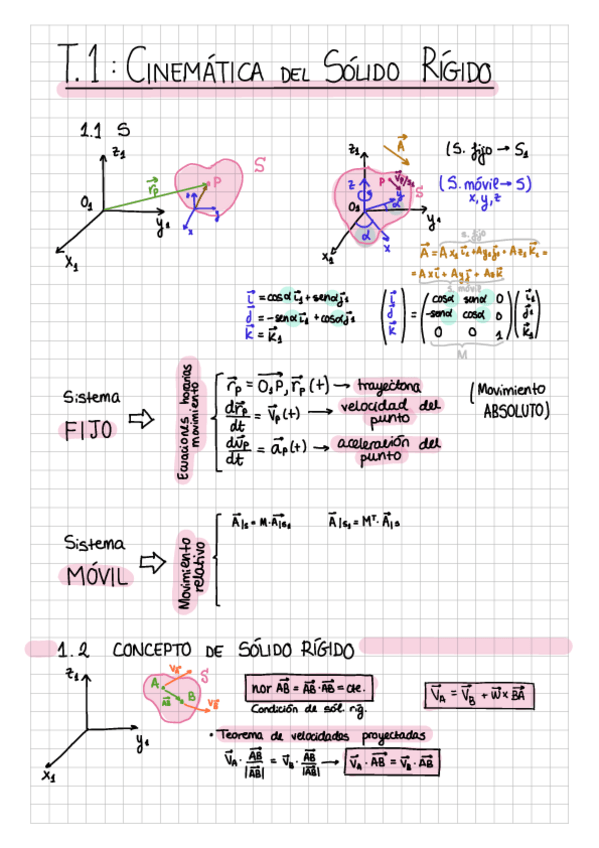 T.1: CINEMÁTICA DEL SÓLIDO RÍGIDO
1.1 S
z₁
r⃗p
P
S
O₁
y₁
x₁
z
y
x
z₁
A⃗
P
V⃗p/s₁
S
z
O₁
y
α
α
y₁
x₁
x
(S. fijo → S₁
(S. móvil → S)
x, y, z
s. fijo
A⃗ = Ax₁ i⃗₁ + Ay₁ j⃗₁ + Az₁ k⃗₁ =
= Ax i⃗ + Ay j⃗ + Az k⃗
s. móvil
i⃗ = cosα i⃗₁ + senα j⃗₁
j⃗ = -senα i⃗₁ + cosα j⃗₁
k⃗ = k⃗₁
(i⃗ j⃗ k⃗) = (cosα senα 0
-senα cosα 0
0 0 1) (i⃗₁ j⃗₁ k⃗₁)
M
Sistema
FIJO
Ecuaciones horarias
movimiento
r⃗p = O₁P⃗, r⃗p (t) → trayectoria
dr⃗p/dt = v⃗p (t) → velocidad del punto
dv⃗p/dt = a⃗p (t) → aceleración del punto
(Movimiento
ABSOLUTO)
Sistema
MÓVIL
Movimiento
relativo
A⃗|s = M·A⃗|s₁ A⃗|s₁ = Mᵀ·A⃗|s
1.2 CONCEPTO DE SÓLIDO RÍGIDO
z₁
y₁
x₁
A
B
AB⃗
V⃗A
V⃗B
S
nor AB⃗ = AB⃗ · AB⃗ = cte.
Condición de sól. ríg.
V⃗A = V⃗B + w⃗ x BA⃗
· Teorema de velocidades proyectadas
V⃗A · AB⃗/|AB⃗| = V⃗B · AB⃗/|AB⃗| → V⃗A · AB⃗ = V⃗B · AB⃗